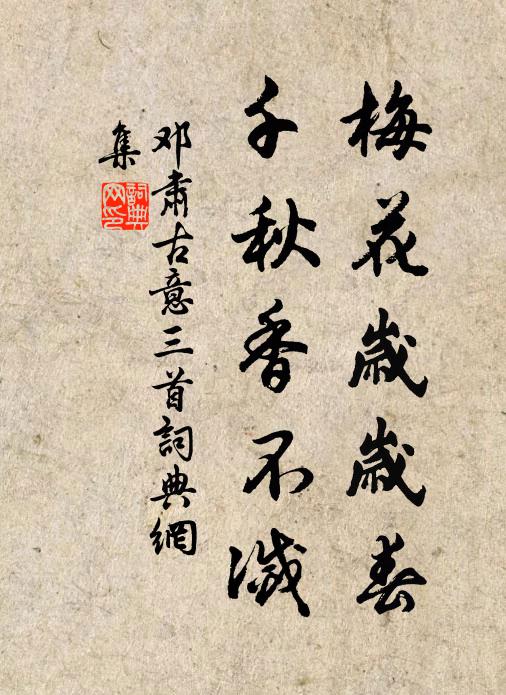 梅花歲歲春
千秋香不滅
邓肅古意三首詞典網
集
詞典
网印